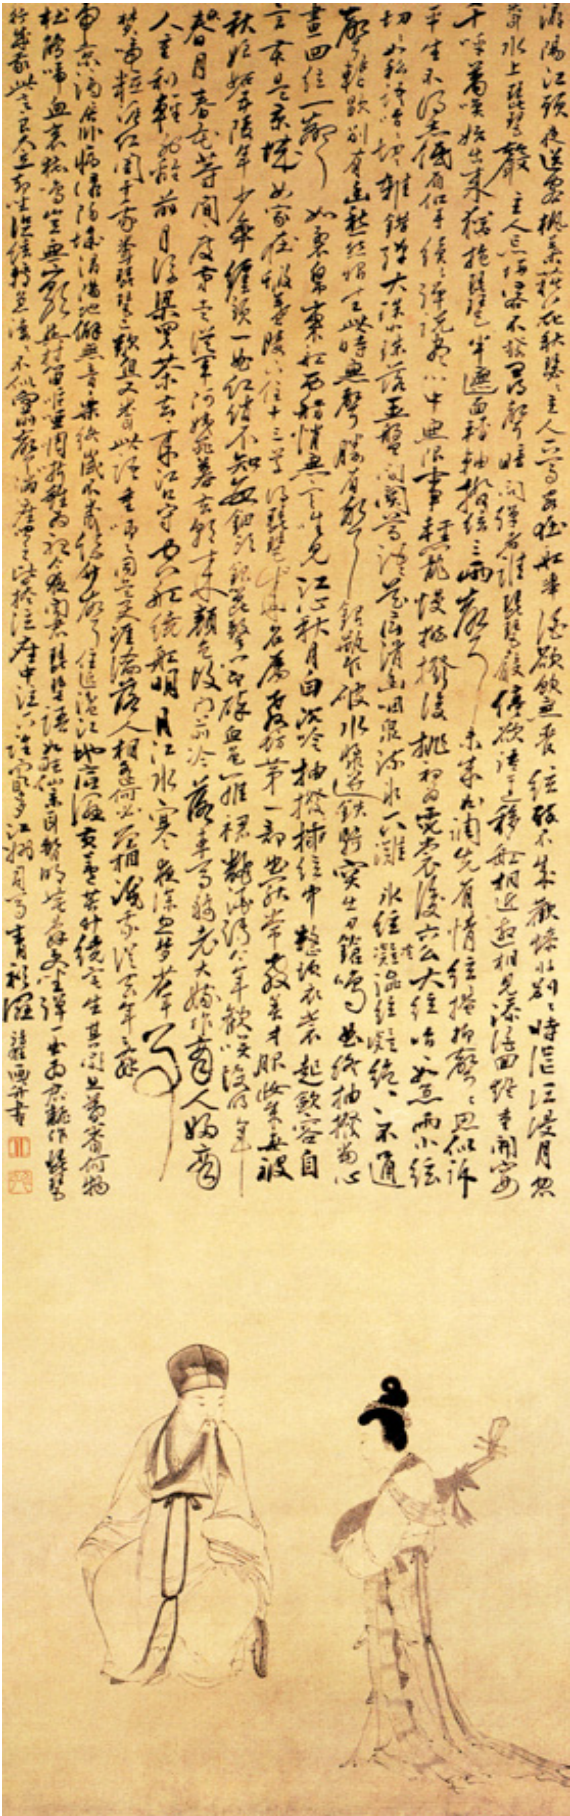 潯陽江頭夜送客楓葉荻花秋瑟々主人下馬客在船舉酒欲飲無管絃醉不成歡慘將別々時茫々江浸月忽
聞水上琵琶聲主人忘歸客不發尋聲暗問彈者誰琵琶聲停欲語遲移船相近邀相見添酒回燈重開宴
千呼萬喚始出來猶抱琵琶半遮面轉軸撥絃三兩聲未成曲調先有情絃絃掩抑聲々思似訴
平生不得志低眉信手續々彈說盡心中無限事輕攏慢撚撥復挑初為霓裳後六么大絃嘈々如急雨小絃
切々如私語嘈々切々雜錯彈大珠小珠落玉盤間關鶯語花底滑幽咽泉流水下灘氷絃凝澀絃凝絕々不通
聲暫歇別有幽愁暗恨生此時無聲勝有聲銀瓶乍破水漿迸鐵騎突出刀鎗鳴曲終抽撥當心
畫四絃一聲如裂帛東船西舫悄無言唯見江心秋月白沉吟抽撥插絃中整頓衣裳起斂容自
言本是京城女家在蝦蟇陵下住十三學得琵琶成名屬教坊第一部曲罷常教善才服妝成每被
秋娘妬五陵年少爭纏頭一曲紅綃不知數鈿頭銀篦擊節碎血色羅裙翻酒污今年歡笑復明年
春月春花等閒度弟走從軍阿姨死暮去朝來顏色改門前冷落車馬稀老大嫁作商人婦商
人重利輕別離前月浮梁買茶去去來江口守空船繞船明月江水寒夜深忽夢少年事
夢啼粧淚紅闌干我聞琵琶已歎息又聞此語重唧々同是天涯淪落人相逢何必曾相識我從去年辭
帝京謫居臥病潯陽城潯陽地僻無音樂終歲不聞絲竹聲住近湓江地底濕黃蘆苦竹繞宅生其間旦暮聞何物
杜鵑啼血哀猿鳴豈無山歌與村笛嘔啞啁哳難為聽今夜聞君琵琶語如聽仙樂耳暫明莫辭更坐彈一曲為君翻作琵琶
行感我此言良久立却坐促絃絃轉急淒々不似向前聲滿座聞之皆掩泣座中泣下誰最多江州司馬青衫濕